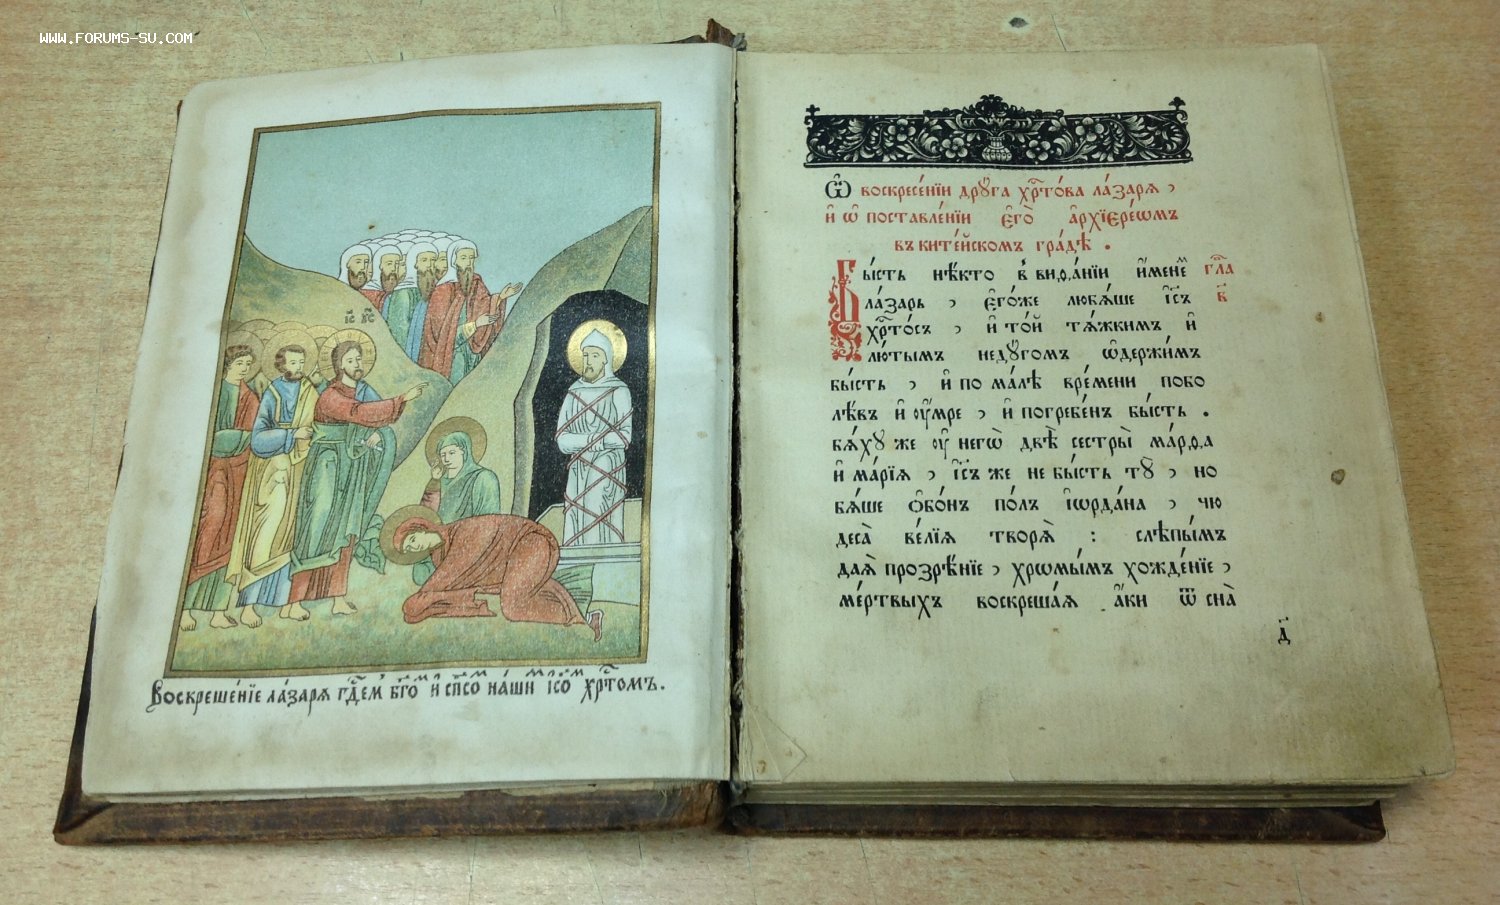 WWW.FORUMS-SU.COM
І҆С ХС
Воскреше́нїе ла́заря гдⷭ҇ем бг҃оⷨ и сп҃соⷨ на́шиⷨ і҆с҃оⷨ хрⷭ҇то́мъ.
Ѽ воскресе́нїи дрꙋ́га хрⷭ҇то́ва ла́заря ,
и҆ ѡ҆ поставле́нїи є҆го̀ а҆рхїєре́ѡмъ
въ ките́йскомъ гра́дѣ .
Бы́сть нѣ́кто в̾ виѳа́нїи и҆́менеⷨ гла҃
ла́зарь , є҆го́же любѧ́ше і҆с҃ъ в҃
хрⷭ҇то́съ , и҆ то́й тѧ́жкимъ и҆
лю́тымъ недꙋ́гомъ ѡ҆держи́мъ
бы́сть , и҆ по ма́лѣ вре́мени побо
лѣ́въ и҆ ᲂу҆́мре , и҆ погребе́нъ бы́сть .
бѧ́хꙋ же ᲂу҆ негѡ̀ двѣ̀ сестры̀ ма́рѳа
и҆ ма́рїя , і҆с҃ъ же не бы́сть тꙋ̀ , но
бѧ́ше ѻ҆бо́нъ по́лъ і҆ѡрда́на , чю
деса̀ ве́лїя творѧ̀ : слѣпы́мъ
даѧ̀ прозрѣ́нїе , хрѡмы́мъ хожде́нїе ,
ме́ртвыхъ воскреша́ѧ а҆́ки ѿ сна̀
д҃